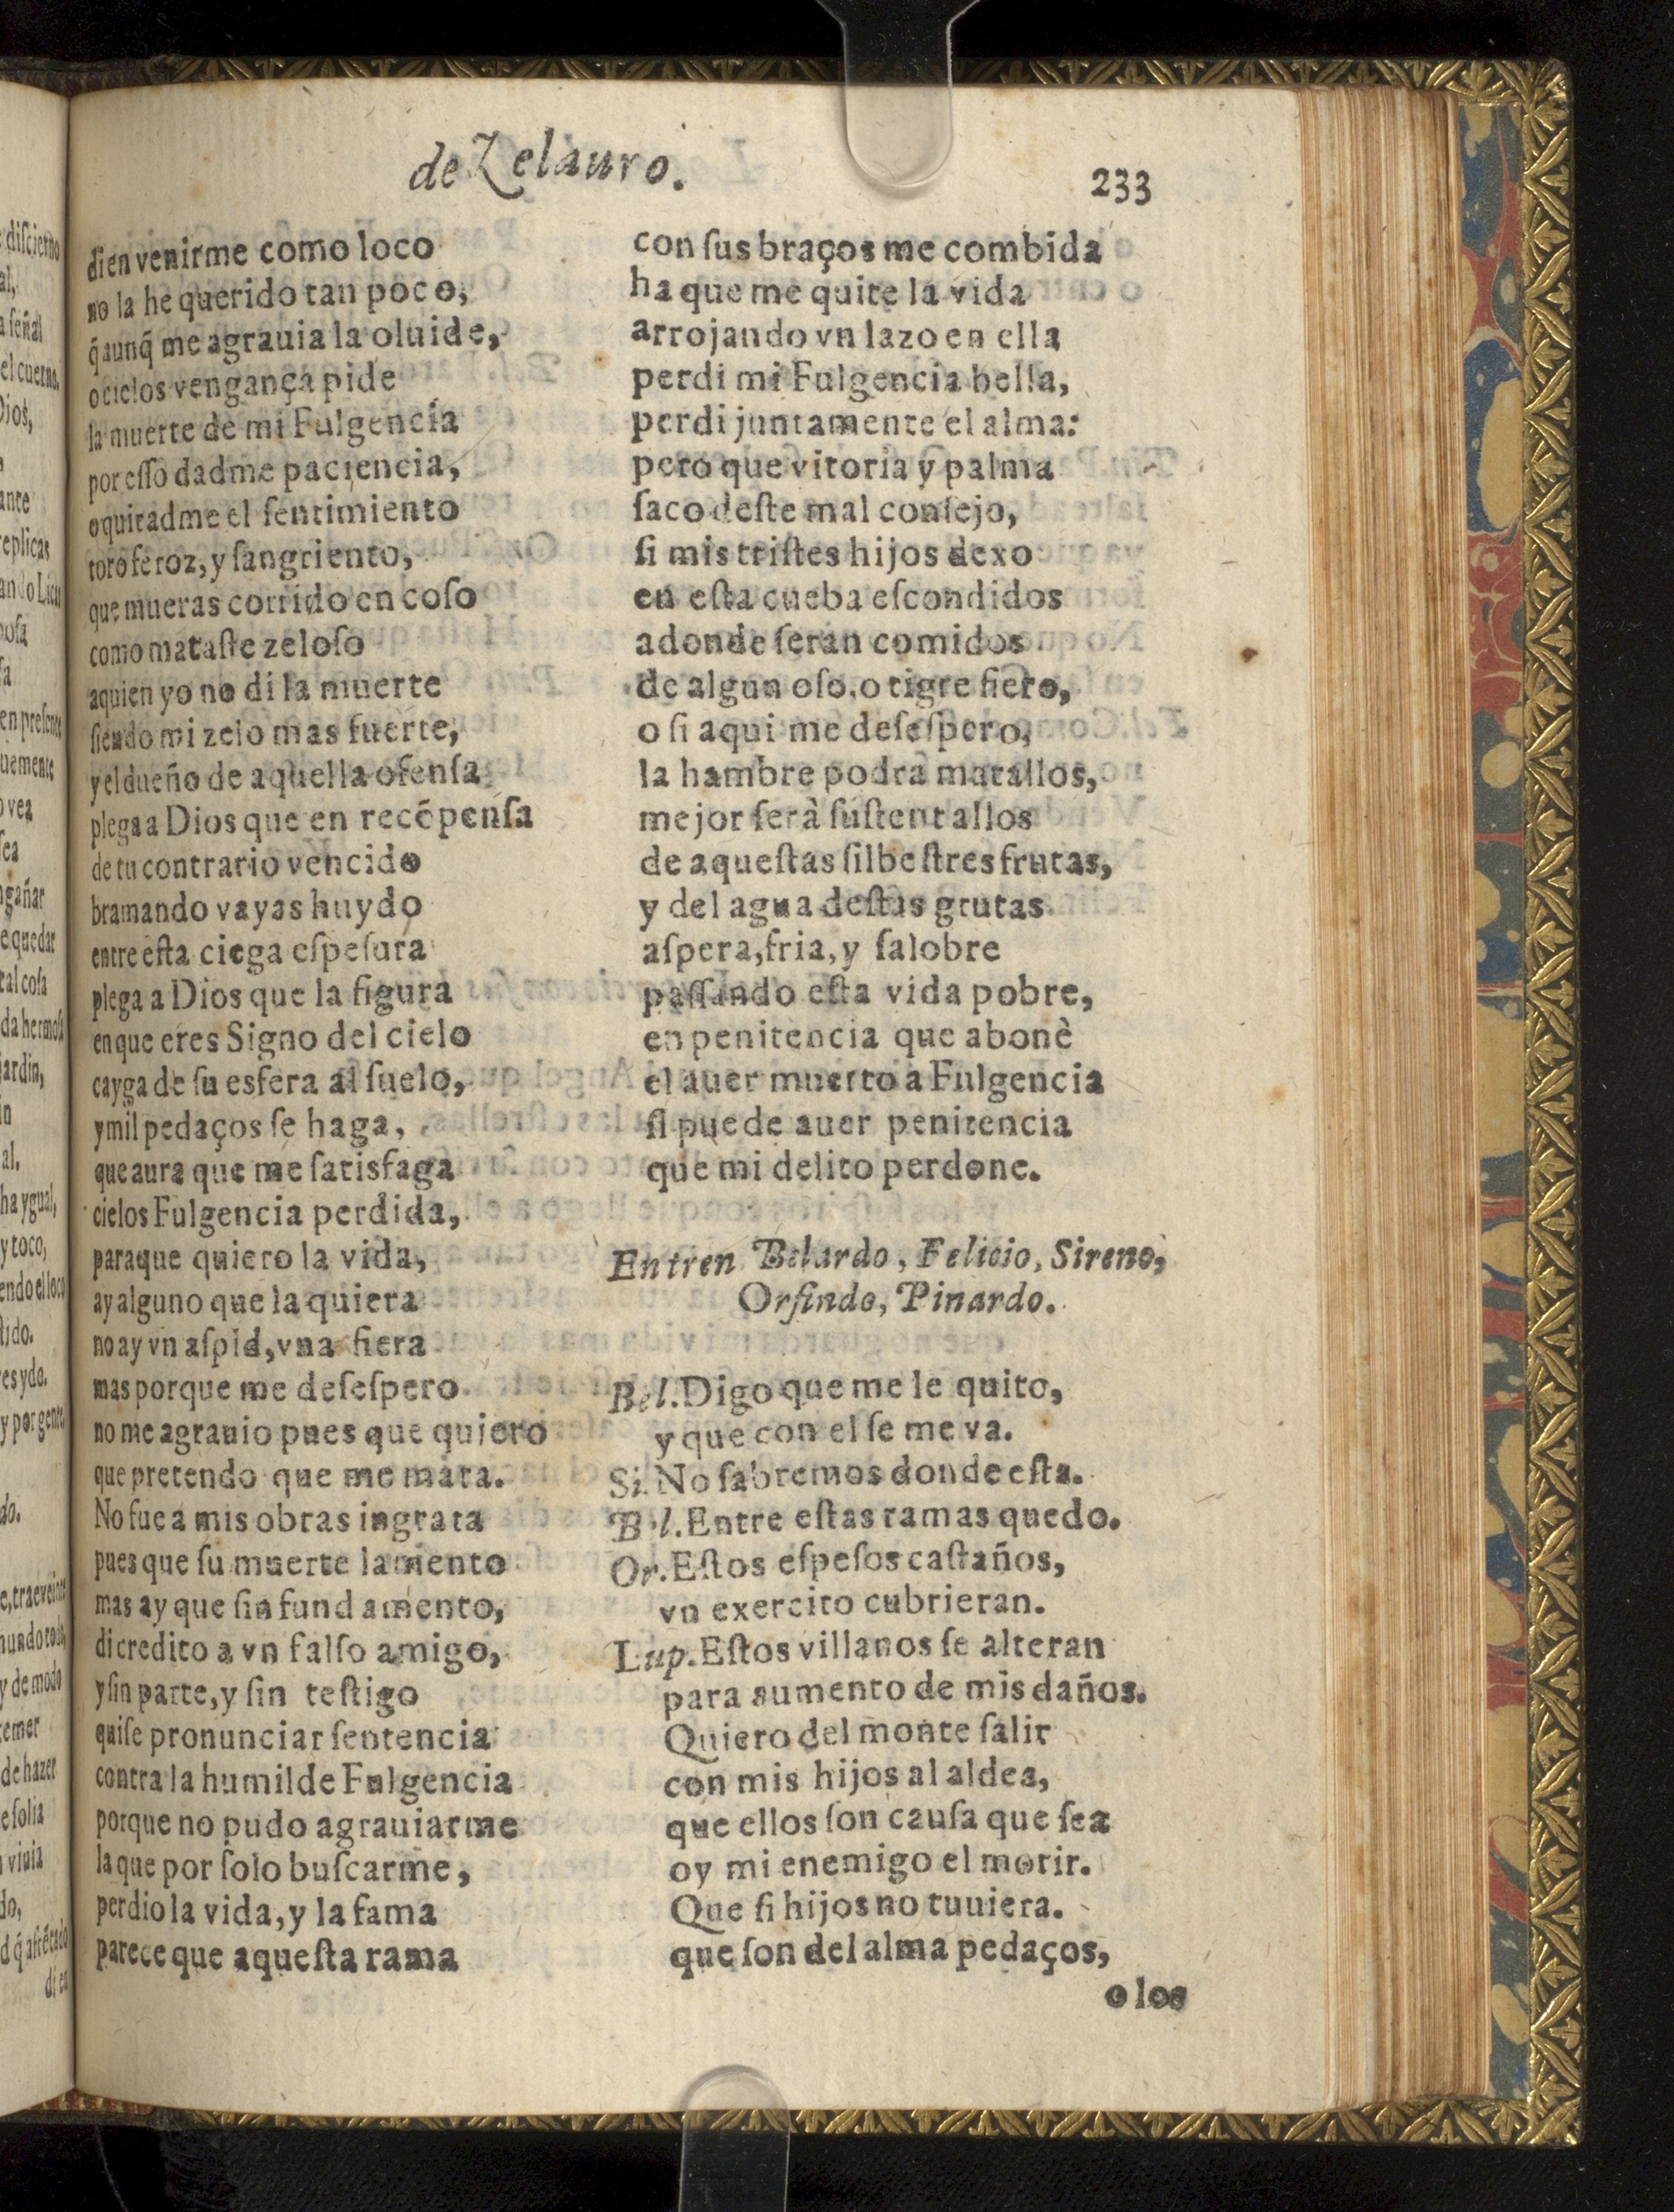 de Zelauro.
233
di en venirme como loco
no la he querido tan poco,
q̃ aunq̃ me agrauia la oluide,
o cielos vengança pide
la muerte de mi Fulgencia
por esso dadme paciencia,
o quitadme el ſentimiento
toro feroz, y ſangriento,
que mueras corrido en coſo
como mataſte zeloſo
a quien yo no di la muerte
ſiendo mi zelo mas fuerte,
y el dueño de aquella ofenſa
plega a Dios que en recõpenſa
de tu contrario vencido
bramando vayas huydo
entre eſta ciega eſpeſura
plega a Dios que la figura
en que eres Signo del cielo
cayga de ſu esfera al ſuelo,
y mil pedaços ſe haga,
que aura que me ſatisfaga
cielos Fulgencia perdida,
para que quiero la vida,
ay alguno que la quiera
no ay vn aſpid, vna fiera
mas porque me deſeſpero
no me agrauio pues que quiero
que pretendo que me mata.
No fue a mis obras ingrata
pues que ſu muerte lamento
mas ay que ſin fundamento,
di credito a vn falſo amigo,
y ſin parte, y ſin teſtigo
quiſe pronunciar ſentencia
contra la humilde Fulgencia
porque no pudo agrauiarme
la que por ſolo buſcarme,
perdio la vida, y la fama
parece que aqueſta rama
con ſus braços me combida
ha que me quite la vida
arrojando vn lazo en ella
perdi mi Fulgencia bella,
perdi juntamente el alma:
pero que vitoria y palma
ſaco deſte mal conſejo,
ſi mis triſtes hijos dexo
en eſta cueba eſcondidos
adonde ſeran comidos
de algun oſo, o tigre fiero,
o ſi aqui me deſeſpero,
la hambre podra matallos,
mejor ſerà ſuſtentallos
de aqueſtas ſilbeſtres frutas,
y del agua deſtas grutas
aſpera, fria, y ſalobre
paſſando eſta vida pobre,
en penitencia que abonè
el auer muerto a Fulgencia
ſi puede auer penitencia
que mi delito perdone.
Entren Belardo, Felicio, Sireno,
Orfindo, Pinardo.
Bel. Digo que me le quito,
y que con el ſe me va.
Si. No ſabremos donde eſta.
B l. Entre eſtas ramas quedo.
Or. Eſtos eſpeſos caſtaños,
vn exercito cubrieran.
Lup. Eſtos villanos ſe alteran
para aumento de mis daños.
Quiero del monte ſalir
con mis hijos al aldea,
que ellos ſon cauſa que ſea
oy mi enemigo el morir.
Que ſi hijos no tuuiera.
que ſon del alma pedaços,
o los